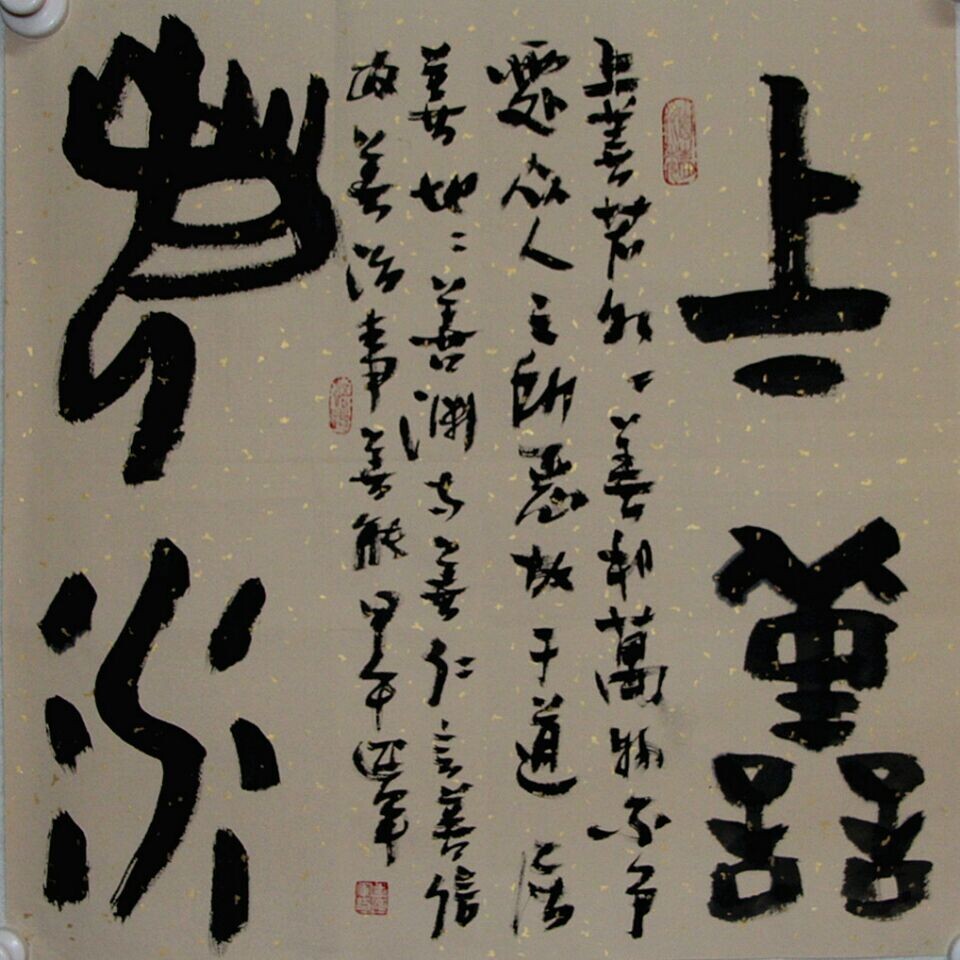 上善
若水
上善若水〻善利萬物不争
處众人之所惡故于道居
善地心善淵与善仁言善信
政善治事善能甲午